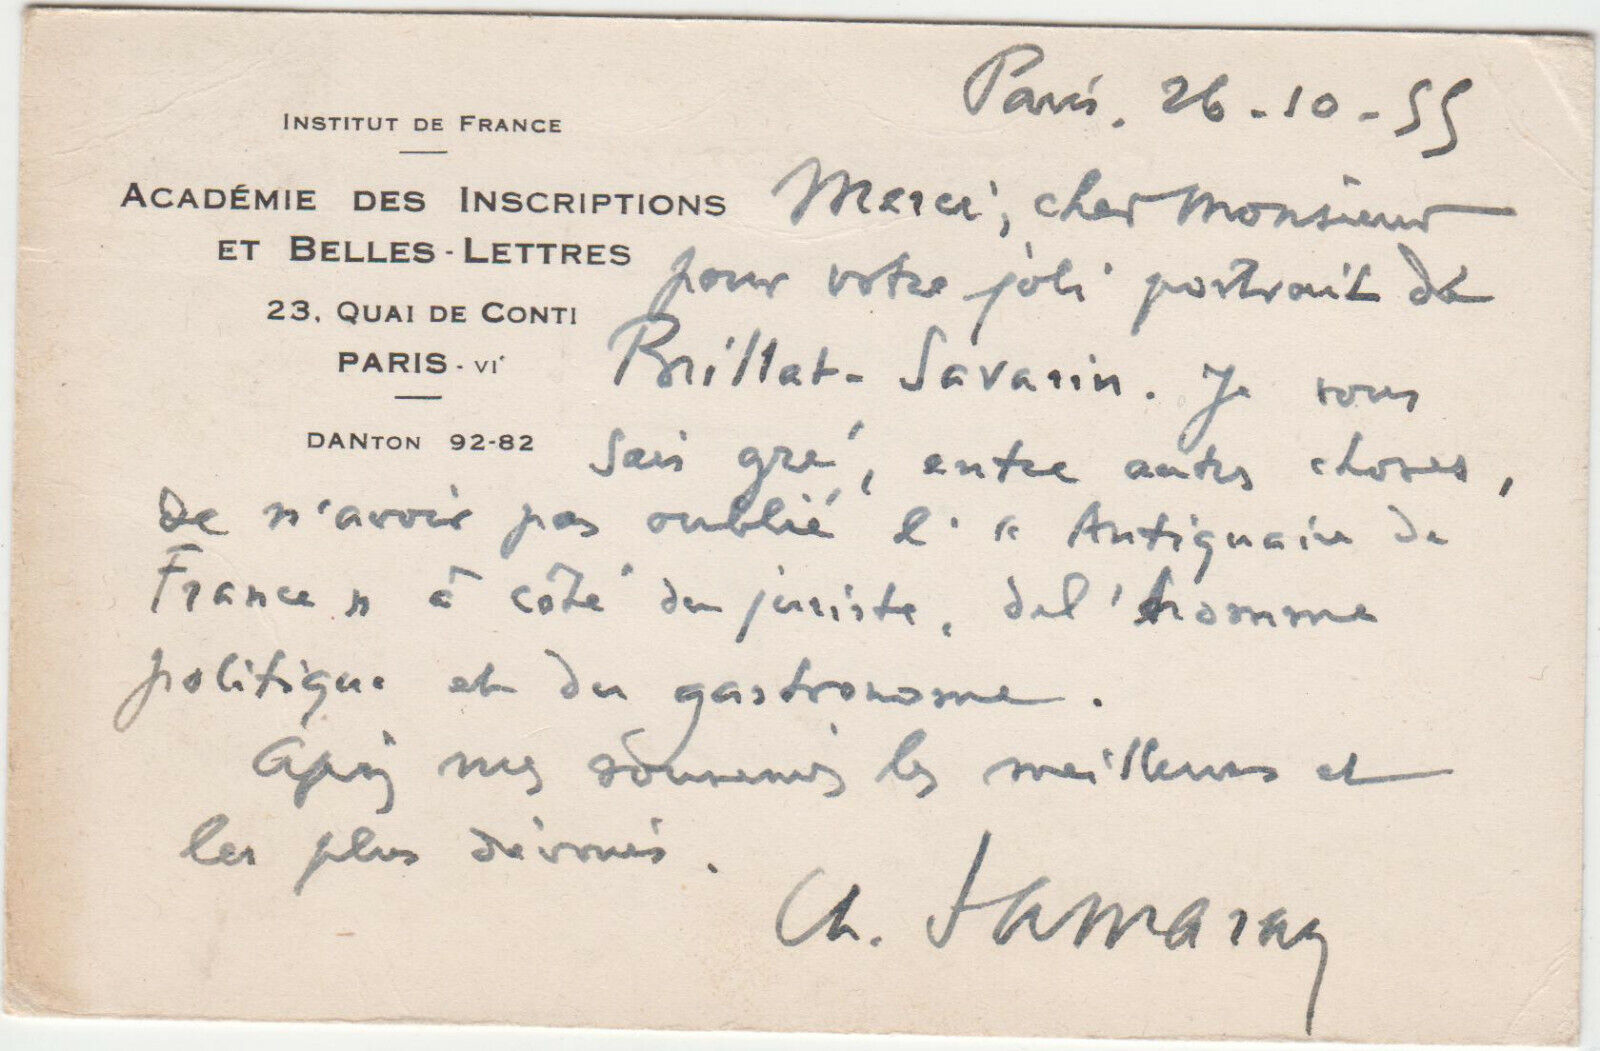 INSTITUT DE FRANCE
ACADÉMIE DES INSCRIPTIONS
ET BELLES-LETTRES
23, QUAI DE CONTI
PARIS - VIᵉ
DANTON 92-82
Paris. 26-10-55
Merci, cher Monsieur
pour votre joli portrait de
Brillat-Savarin. Je vous
sais gré, entre autres choses,
de n'avoir pas oublié l'« Antiquaire de
France » à côté du juriste, de l'homme
politique et du gastronome.
mes souvenirs les meilleurs et
les plus dévoués.
Ch. Samaran